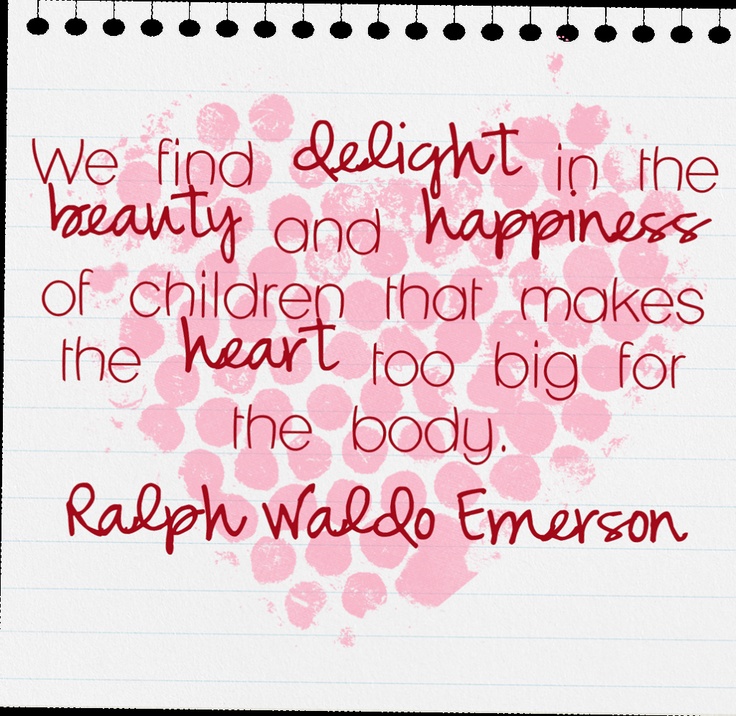 We find delight in the
beauty and happiness
of children that makes
the heart too big for
the body.
Ralph Waldo Emerson